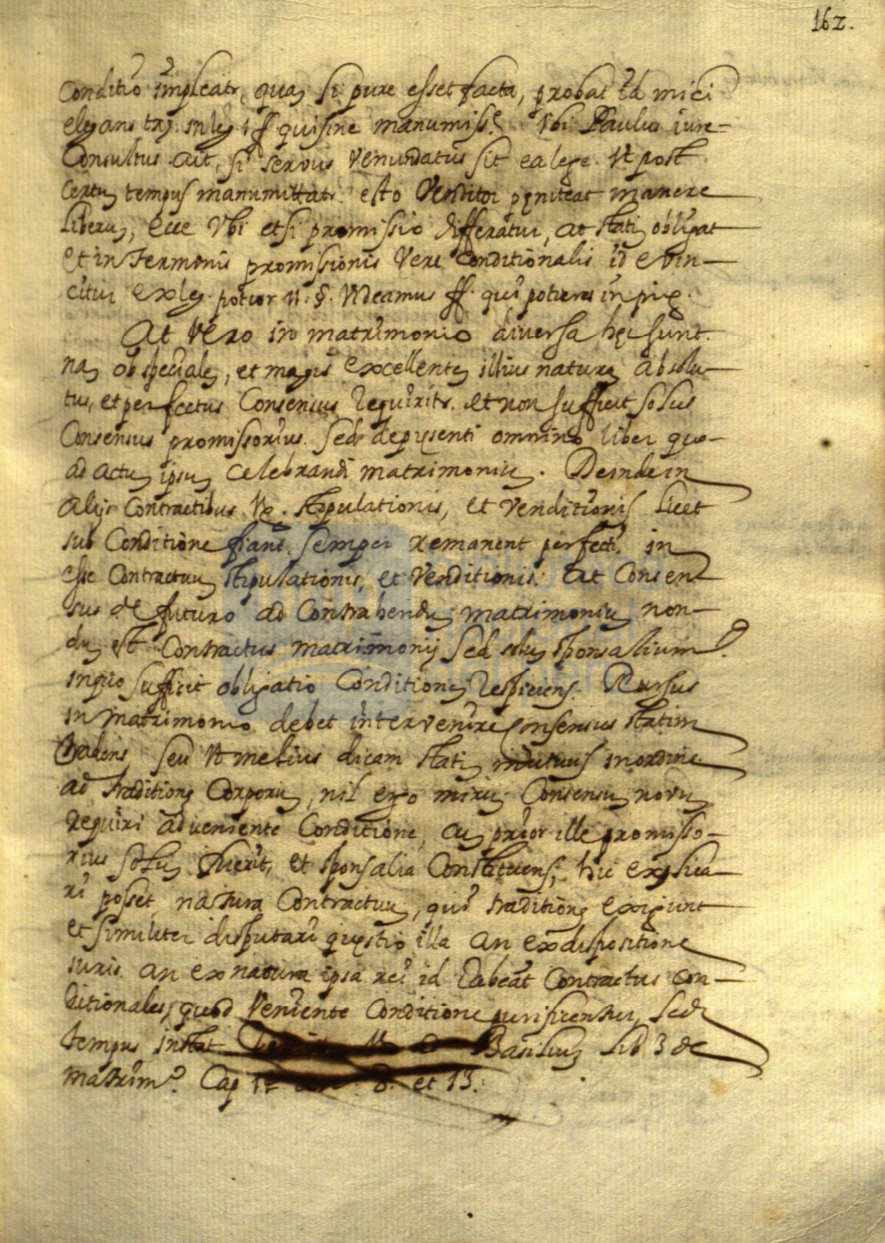 162.
Conditio impleatr, quam si pure esset facta, probat id mici
elegans tex. in leg. ff qui sine manumiss. Vbi Paulus iure-
Consultus ait, si servus venundatus sit ea lege. Vt post
Certum tempus manumittatr. esto Venditor pęniteat manere
liberum, ecce Vbi etsi promissio differatur, at statim obligat
et in termonis promissionis Vere Conditionalis id evin-
citur ex leg. potior 11. §. Videamus ff. qui potiores in pig.
At vero in matrimonio diversa sunt.
nam ob specialem, et magis excellentem illius naturam absolu-
tus, et perfectus Consensus requiritr. et non sufficit solus
Consensus promissorius. sed de pręsenti omnino liber quo-
ad actum ipsum celebrandi matrimonium. Deinde in
alijs Contractibus Vę. stipulationis, et venditionis licet
sub Conditione fiant. semper remanent perfecti in
esse Contractuum stipulationis, et Venditionis. at Consen
sus de futuro ad Contrahendum matrimonium non-
dum est Contractus matrimonij sed solum sponsalium.
in quo sufficit obligatio Conditionem respiciens. Rursus
in matrimonio debet intervenire Consensus statim
tradens seu Vt melius dicam statim mutuus in ordine
ad traditionem Corporum, nil ergo mirum Consensum novum
requiri adveniente Conditione, cum prior ille promisso-
rius solum fuerit, et sponsalia Constituens, hic explica-
ri posset natura Contractuum, qui traditionem exigunt
et similiter disputari quęstio illa an ex dispositione
iuris an ex natura ipsa rei id habeat Contractus con-
ditionales, quod Veniente Conditione purificentur, sed
tempus instat Basilium lib 3 de
matrim.º Cap 12 8. et 13.